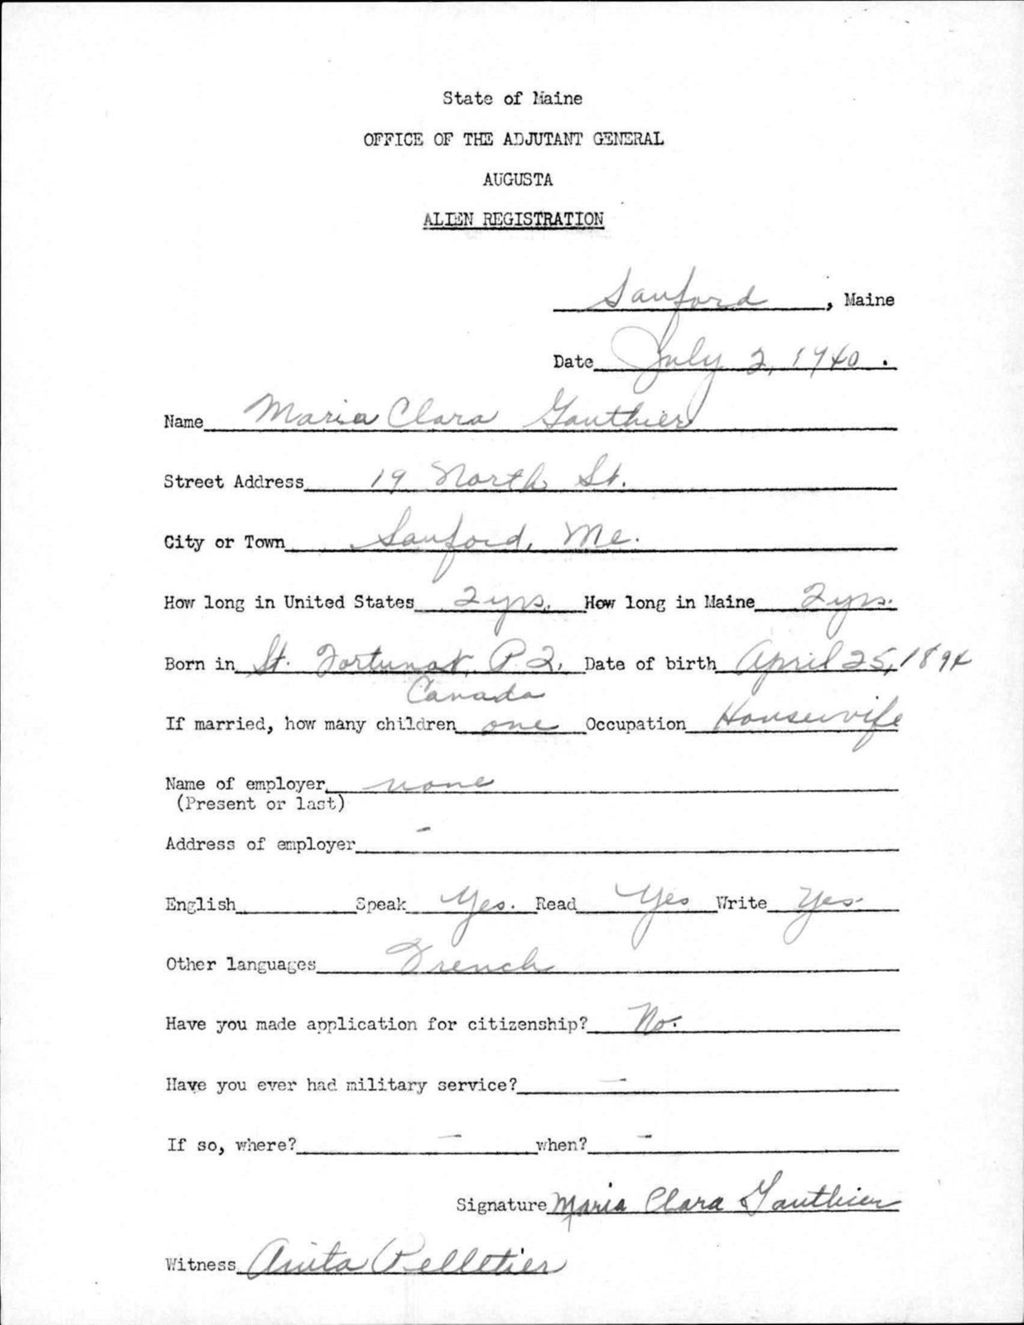 State of Maine
OFFICE OF THE ADJUTANT GENERAL
AUGUSTA
ALIEN REGISTRATION
Sanford, Maine
Date July 2, 1940.
Name Maria Clara Gauthier
Street Address 19 North St.
City or Town Sanford, Me.
How long in United States 2 yrs. How long in Maine 2 yrs.
Born in St. Fortunat, P.Q. Date of birth April 25, 1894
Canada
If married, how many children one Occupation Housewife
Name of employer none
(Present or last)
Address of employer -
English Speak Yes. Read Yes Write Yes
Other languages French
Have you made application for citizenship? No.
Have you ever had military service? -
If so, where? - when? -
Signature Maria Clara Gauthier
Witness Anita Pelletier